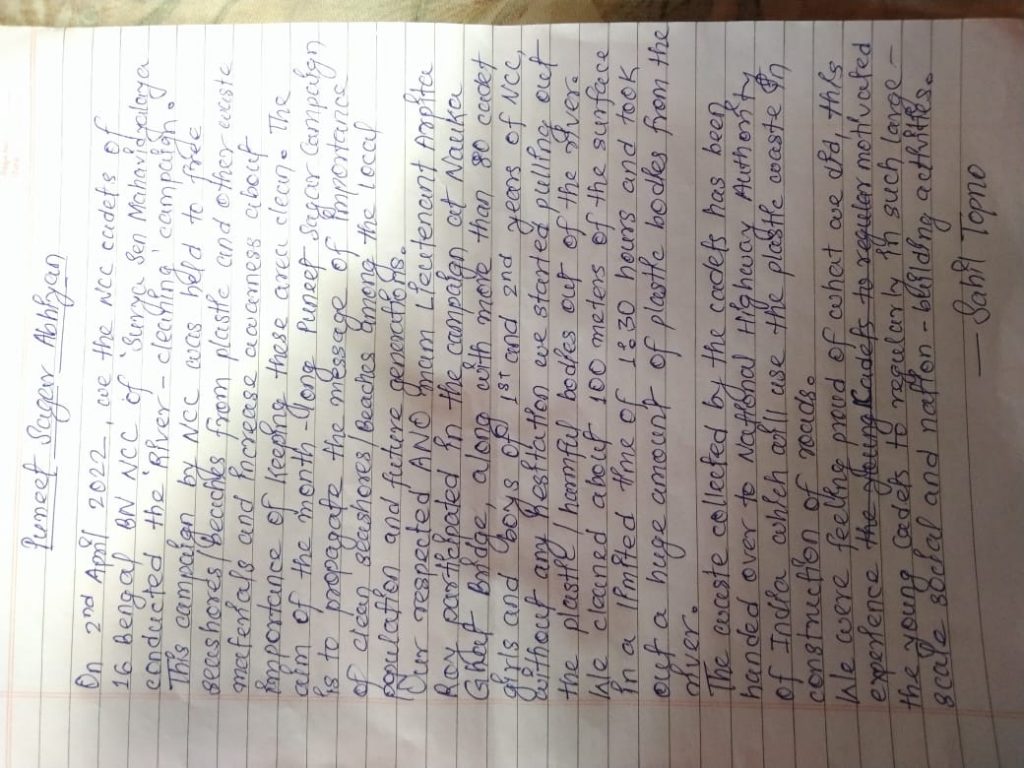 Puneet Sagar Abhiyan
On 2nd April 2022, we the NCC cadets of
16 bengal BN NCC of 'Surya Sen Mahavidyalaya
conducted the 'River-cleaning' campaign.
This campaign by NCC was held to free
seashores/beaches from plastic and other waste
materials and increase awareness about
importance of keeping these area clean. The
aim of the month-long Puneet Sagar Campaign
is to propagate the message of importance
of clean seashores/Beaches among the local
population and future generations.
Our respected ANO mam Lieutenant Arpita
Roy participated in the campaign at Nauka
Ghat Bridge, along with more than 80 cadet
girls and boys of 1st and 2nd years of NCC,
without any hesitation we started pulling out
the plastic/harmful bodies out of the river.
We cleaned about 100 meters of the surface
in a limited time of 1:30 hours and took
out a huge amount of plastic bodies from the
river.
The waste collected by the cadets has been
handed over to National Highway Authority
of India which will use the plastic waste in
construction of roads.
We were feeling proud of what we did, this
experience the young Cadets to regular motivated
the young cadets to regularly in such large-
scale social and nation-building activities.
— Sahil Topno